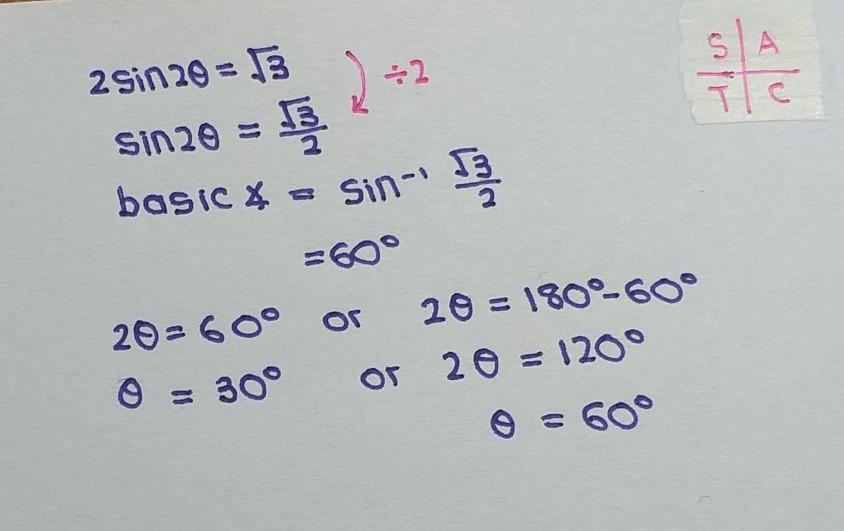 2sin2θ = √3
÷2
sin2θ = √3/2
basic ∡ = sin⁻¹ √3/2
= 60°
2θ = 60° or 2θ = 180° - 60°
θ = 30° or 2θ = 120°
θ = 60°
S A
T C